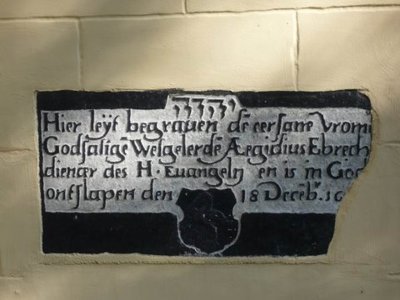 יהוה
Hier leÿt begrauen de eersame Vrom
Godsalige Welgelerde Ægidius Ebrech
dienaer des H. Euangelÿ en is in God
ontslapen den 18 Deceb.r 16